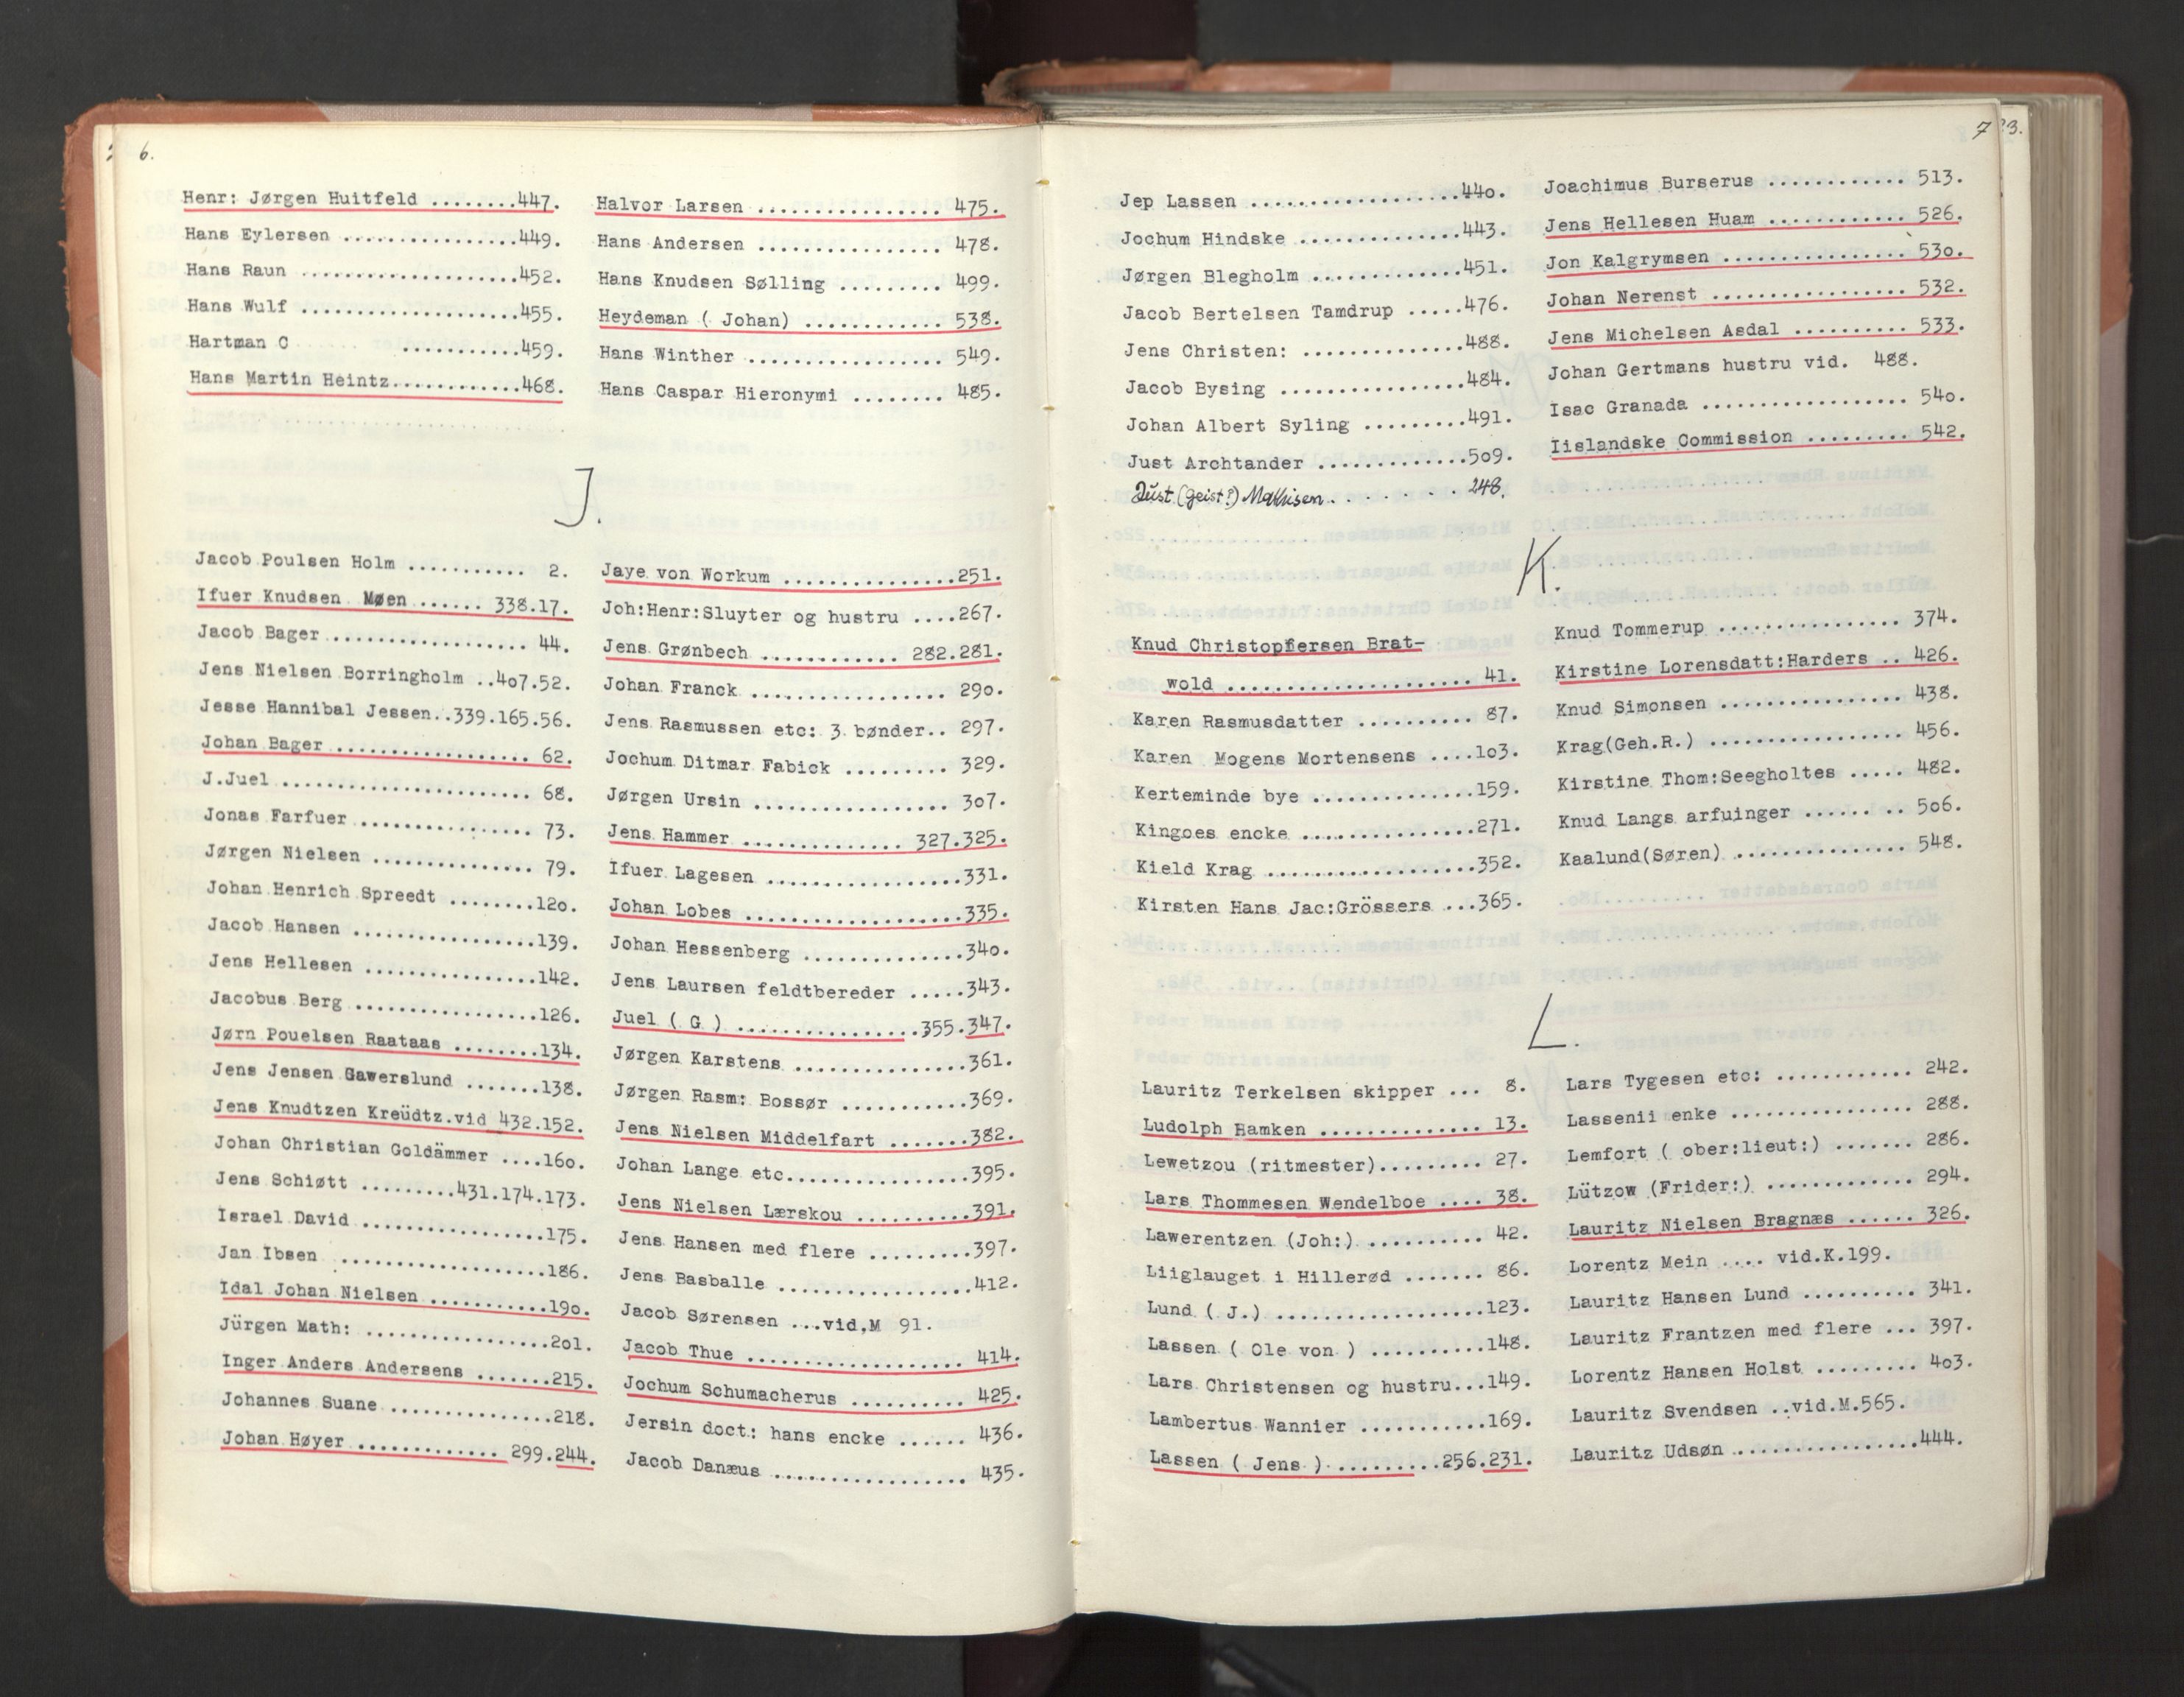 6.
Henr: Jørgen Huitfeld ........447.
Hans Eylersen .................449.
Hans Raun .....................452.
Hans Wulf .....................455.
Hartman C ...........459.
Hans Martin Heintz............468.
Halvor Larsen ................. 475.
Hans Andersen ................. 478.
Hans Knudsen Sølling ......... 499.
Heydeman ( Johan) ............ 538.
Hans Winther .................. 549.
Hans Caspar Hieronymi ........ 485.
J.
Jacob Poulsen Holm ........... 2.
Ifuer Knudsen Møen ...... 338.17.
Jacob Bager .................. 44.
Jens Nielsen Borringholm ..407.52.
Jesse Hannibal Jessen..339.165.56.
Johan Bager .................. 62.
J.Juel ....................... 68.
Jonas Farfuer ................ 73.
Jørgen Nielsen ............... 79.
Johan Henrich Spreedt ........120.
Jacob Hansen .................139.
Jens Hellesen ................142.
Jacobus Berg .................126.
Jørn Pouelsen Raataas ........134.
Jens Jensen Gawerslund .......138.
Jens Knudtzen Kreüdtz.vid 432.152.
Johan Christian Goldämmer ....160.
Jens Schiøtt .........431.174.173.
Israel David .................175.
Jan Ibsen ....................186.
Idal Johan Nielsen ...........190.
Jürgen Math: .................201.
Inger Anders Andersens .......215.
Johannes Suane ...............218.
Johan Høyer ............. 299.244.
Jaye von Workum ...............251.
Joh:Henr:Sluyter og hustru ....267.
Jens Grønbech ............ 282.281.
Johan Franck .................. 290.
Jens Rasmussen etc: 3 bønder.. 297.
Jochum Ditmar Fabick ......... 329.
Jørgen Ursin ................. 307.
Jens Hammer .............. 327.325.
Ifuer Lagesen ..................331.
Johan Lobes ....................335.
Johan Hessenberg ...............340.
Jens Laursen feldtbereder .....343.
Juel ( G ) ................355.347.
Jørgen Karstens ...............361.
Jørgen Rasm: Bossør ...........369.
Jens Nielsen Middelfart .......382.
Johan Lange etc................395.
Jens Nielsen Lærskou ..........391.
Jens Hansen med flere .........397.
Jens Basballe .................412.
Jacob Sørensen ...vid.M 91.
Jacob Thue ................... 414.
Jochum Schumacherus .......... 425.
Jersin doct: hans encke ...... 436.
Jacob Danæus ................. 435.
7
3.
Jep Lassen ...................440.
Jochum Hindske ...............443.
Jørgen Blegholm ..............451.
Jacob Bertelsen Tamdrup .....476.
Jens Christen: ...............488.
Jacob Bysing .................484.
Johan Albert Syling .........491.
Just Archtander .............509.
Just (geist?) Mathisen . . . . . . . . 248.
Joachimus Burserus ............ 513.
Jens Hellesen Huam ............ 526.
Jon Kalgrymsen ................ 530.
Johan Nerenst ................. 532.
Jens Michelsen Asdal .......... 533.
Johan Gertmans hustru vid. 488.
Isac Granada .................. 540.
Iislandske Commission ......... 542.
K.
Knud Christopfersen Brat-
wold ...................... 41.
Karen Rasmusdatter .......... 87.
Karen Mogens Mortensens ....103.
Kerteminde bye ..............159.
Kingoes encke ...............271.
Kield Krag ..................352.
Kirsten Hans Jac:Grössers ...365.
Knud Tommerup ................ 374.
Kirstine Lorensdatt:Harders .. 426.
Knud Simonsen ................ 438.
Krag(Geh.R.) ................. 456.
Kirstine Thom:Seegholtes ..... 482.
Knud Langs arfuinger ...... .. 506.
Kaalund(Søren) ............... 548.
L.
Lauritz Terkelsen skipper ... 8.
Ludolph Hamken .............. 13.
Lewetzou (ritmester)......... 27.
Lars Thommesen Wendelboe .... 38.
Lawerentzen (Joh:) .......... 42.
Liiglauget i Hillerød ....... 86.
Lund ( J.) ..................123.
Lassen ( Ole von ) ..........148.
Lars Christensen og hustru...149.
Lambertus Wannier ...........169.
Lassen ( Jens ) .........256.231.
Lars Tygesen etc: ............ 242.
Lassenii enke ................ 288.
Lemfort ( ober:lieut:) ....... 286.
Lützow (Frider:) ............. 294.
Lauritz Nielsen Bragnæs ...... 326.
Lorentz Mein .... vid.K.199.
Lauritz Hansen Lund .......... 341.
Lauritz Frantzen med flere ... 397.
Lorentz Hansen Holst ......... 403.
Lauritz Svendsen ..vid.M.565.
Lauritz Udsøn ................444.